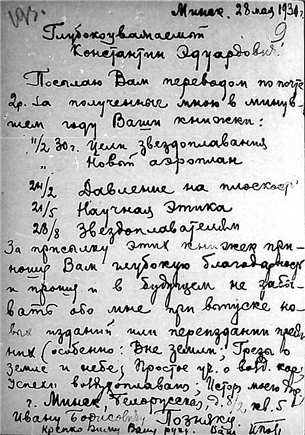 Минск, 28 мая 1931 г.
9
Глубокоуважаемый
Константин Эдуардович!
Посылаю Вам переводом по почте
2р. за полученные мною в минув-
шем году Ваши книжки:
11/2 30 г. Цели звездоплавания
" Новый аэроплан
24/2 Давление на плоскост
21/5 Научная этика
28/8 Звездоплавателям
За присылку этих книжек при-
ношу Вам глубокую благодарность
и прошу и в будущем не забы-
вать обо мне при выпуске но-
вых изданий или переиздании преж-
них (особенно: Вне земли; Грезы о
земле и небе; Простое уч. о возд. кор.
Успехи воздухоплаван;
г. Минск, Белорусская, д. 8/2 кв. 5
Ивану Борисовичу Позняку.
Крепко жму Вашу руку. Ваш